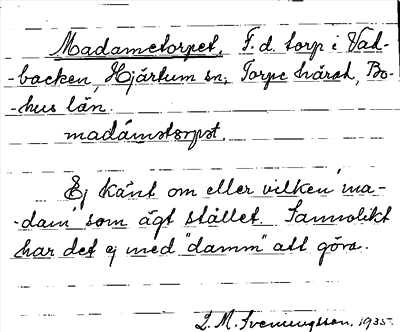 Madametorpet. F. d. torp i Vad-
-backen, Hjärtum sn; Torpe härad, Bo-
-hus län.
madámstorpet.
Ej känt om eller vilken "ma-
-dam" som ägt stället. Sannolikt
har det ej med "damm" att göra.
L. M. Svenungsson. 1935.